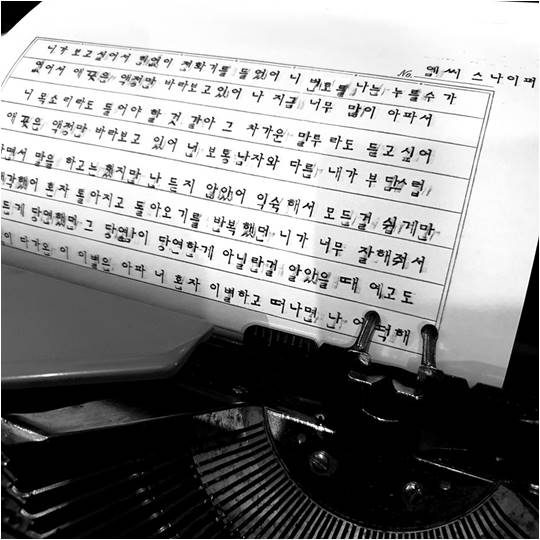 No. 엠씨 스나이퍼
니가 보고싶어서 전화기를 들었어 니 번호를 나는 누를수가
없어서 애꿎은 액정만 바라보고있어 나 지금 너무 많이 아파서
니 목소리라도 들어야 할 것 같아 그 차가운 말투라도 듣고싶어
애꿎은 액정만 바라보고 있어 넌 보통남자와 다른 내가 부담스럽
다면서 말을 하고는했지만 난 듣지 않았어 익숙해서 모든걸 쉽게만
생각했어 혼자 돌아지고 돌아오기를 반복했던 니가 너무 잘해줘서
모든게 당연했던 그 당연함이 당연한게 아닐란걸 알았을 때 예고도
없이 다가온 이 이별은 아파 니 혼자 이별하고 떠나면 난 어떡해